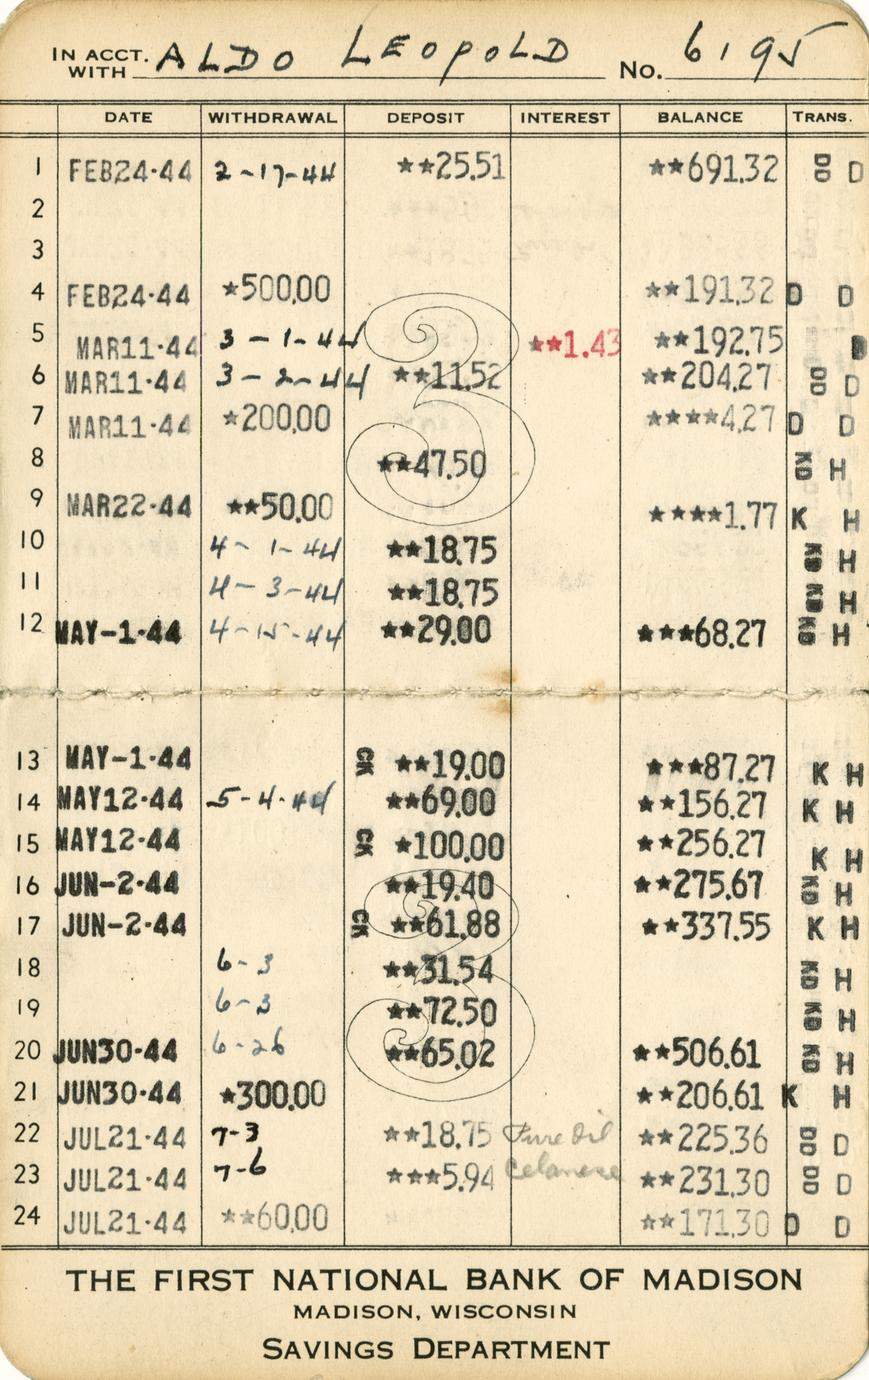 IN ACCT. WITH ALDO LEOPOLD No. 6195
DATE WITHDRAWAL DEPOSIT INTEREST BALANCE TRANS.
1 FEB24·44 2-17-44 **25.51 **691.32 DD D
2
3
4 FEB24·44 *500.00 **191.32 D D
5 MAR11·44 3-1-44 **1.43 **192.75
6 MAR11·44 3-2-44 **11.52 **204.27 DD D
7 MAR11·44 *200.00 ****4.27 D D
8 **47.50 KD H
9 MAR22·44 **50.00 ****1.77 K H
10 4-1-44 **18.75 KD H
11 4-3-44 **18.75 KD H
12 MAY-1·44 4-15-44 **29.00 ***68.27 KD H
13 MAY-1·44 CK **19.00 ***87.27 K H
14 MAY12·44 5-4-44 **69.00 **156.27 K H
15 MAY12·44 CK *100.00 **256.27 K H
16 JUN-2·44 **19.40 **275.67 KD H
17 JUN-2·44 CK **61.88 **337.55 K H
18 6-3 **31.54 KD H
19 6-3 **72.50 KD H
20 JUN30·44 6-26 **65.02 **506.61 KD H
21 JUN30·44 *300.00 **206.61 K H
22 JUL21·44 7-3 **18.75 Pure Oil **225.36 DD D
23 JUL21·44 7-6 ***5.94 Celanese **231.30 DD D
24 JUL21·44 **60.00 **171.30 D D
THE FIRST NATIONAL BANK OF MADISON
MADISON, WISCONSIN
SAVINGS DEPARTMENT